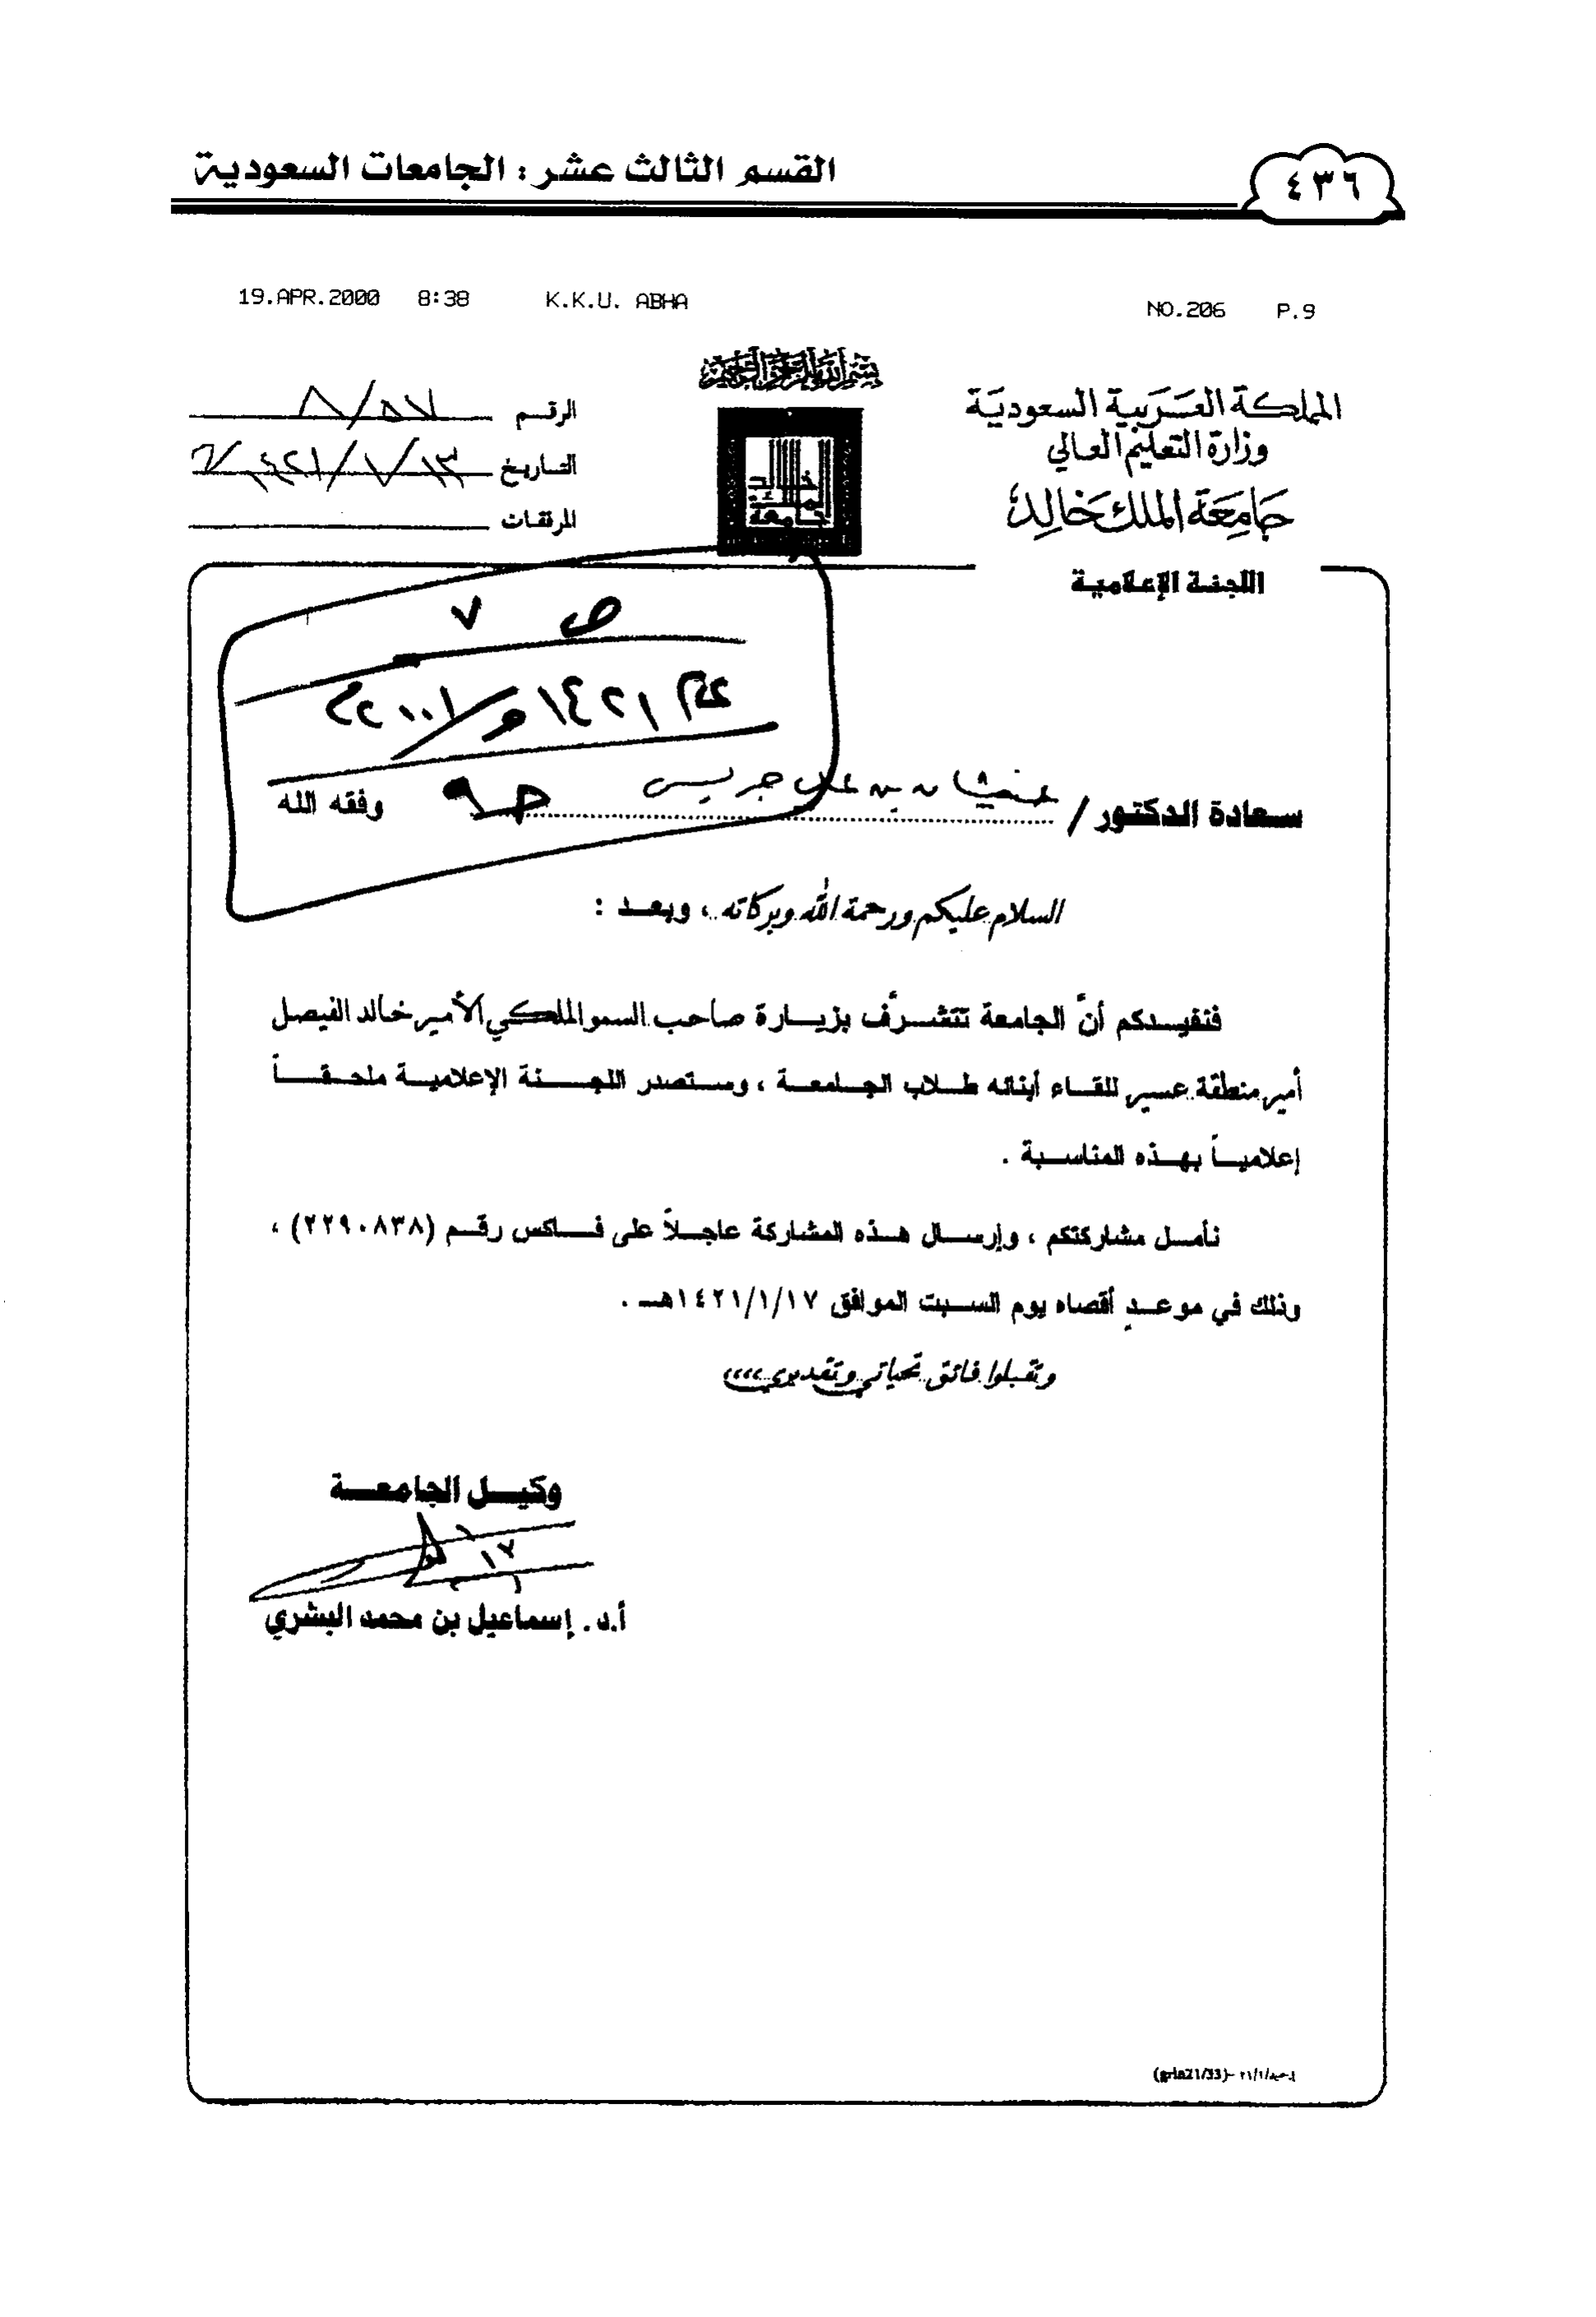 القسم الثالث عشر : الجامعات السعودية
٤٣٦
19.APR.2000 8:38 K.K.U. ABHA NO.206 P.9
بسم الله الرحمن الرحيم
المملكة العربية السعودية
وزارة التعليم العالي
جامعة الملك خالد
اللجنة الإعلامية
الرقم
التاريخ ١٤٢١/١/١٣
المرفقات
جامعة الملك خالد
ص ٧
١٤٢١
سعادة الدكتور / غيثان بن علي جريس وفقه الله
السلام عليكم ورحمة الله وبركاته ، وبعد :
فنفيدكم أنّ الجامعة تتشرّف بزيارة صاحب السمو الملكي الأمير خالد الفيصل
أمير منطقة عسير للقاء أبنائه طلاب الجامعة ، وستصدر اللجنة الإعلامية ملحقاً
إعلامياً بهذه المناسبة .
نأمل مشاركتكم ، وإرسال هذه المشاركة عاجلاً على فاكس رقم (٢٢٩٠٨٣٨) ،
وذلك في موعدٍ أقصاه يوم السبت الموافق ١٤٢١/١/١٧هـ .
وتقبلوا فائق تحياتي وتقديري ،،،،
وكيل الجامعة
أ.د. إسماعيل بن محمد البشري